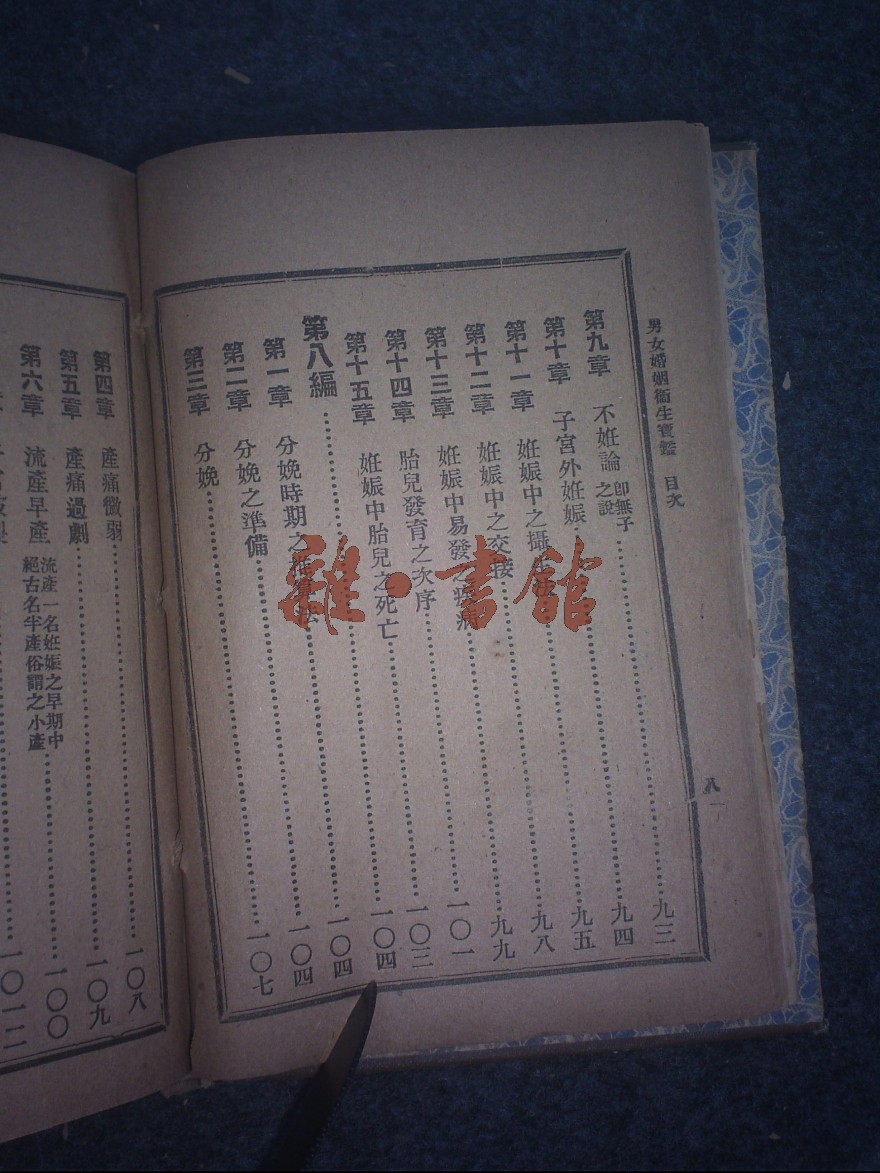 男女婚姻衞生寶鑑 目次 八
第九章 不姙論 卽無子之說 九三
第十章 子宮外姙娠 九四
第十一章 姙娠中之攝生法 九五
第十二章 姙娠中之交接 九八
第十三章 姙娠中易發之疾病 九九
第十四章 胎兒發育之次序 一〇一
第十五章 姙娠中胎兒之死亡 一〇三
第八編 一〇四
第一章 分娩時期之推算法 一〇四
第二章 分娩之準備 一〇四
第三章 分娩 一〇七
第四章 產痛微弱 一〇八
第五章 產痛過劇 一〇九
第六章 流產早產 流產一名姙娠之早期中絕古名半產俗謂之小產 一〇〇
雜·書館